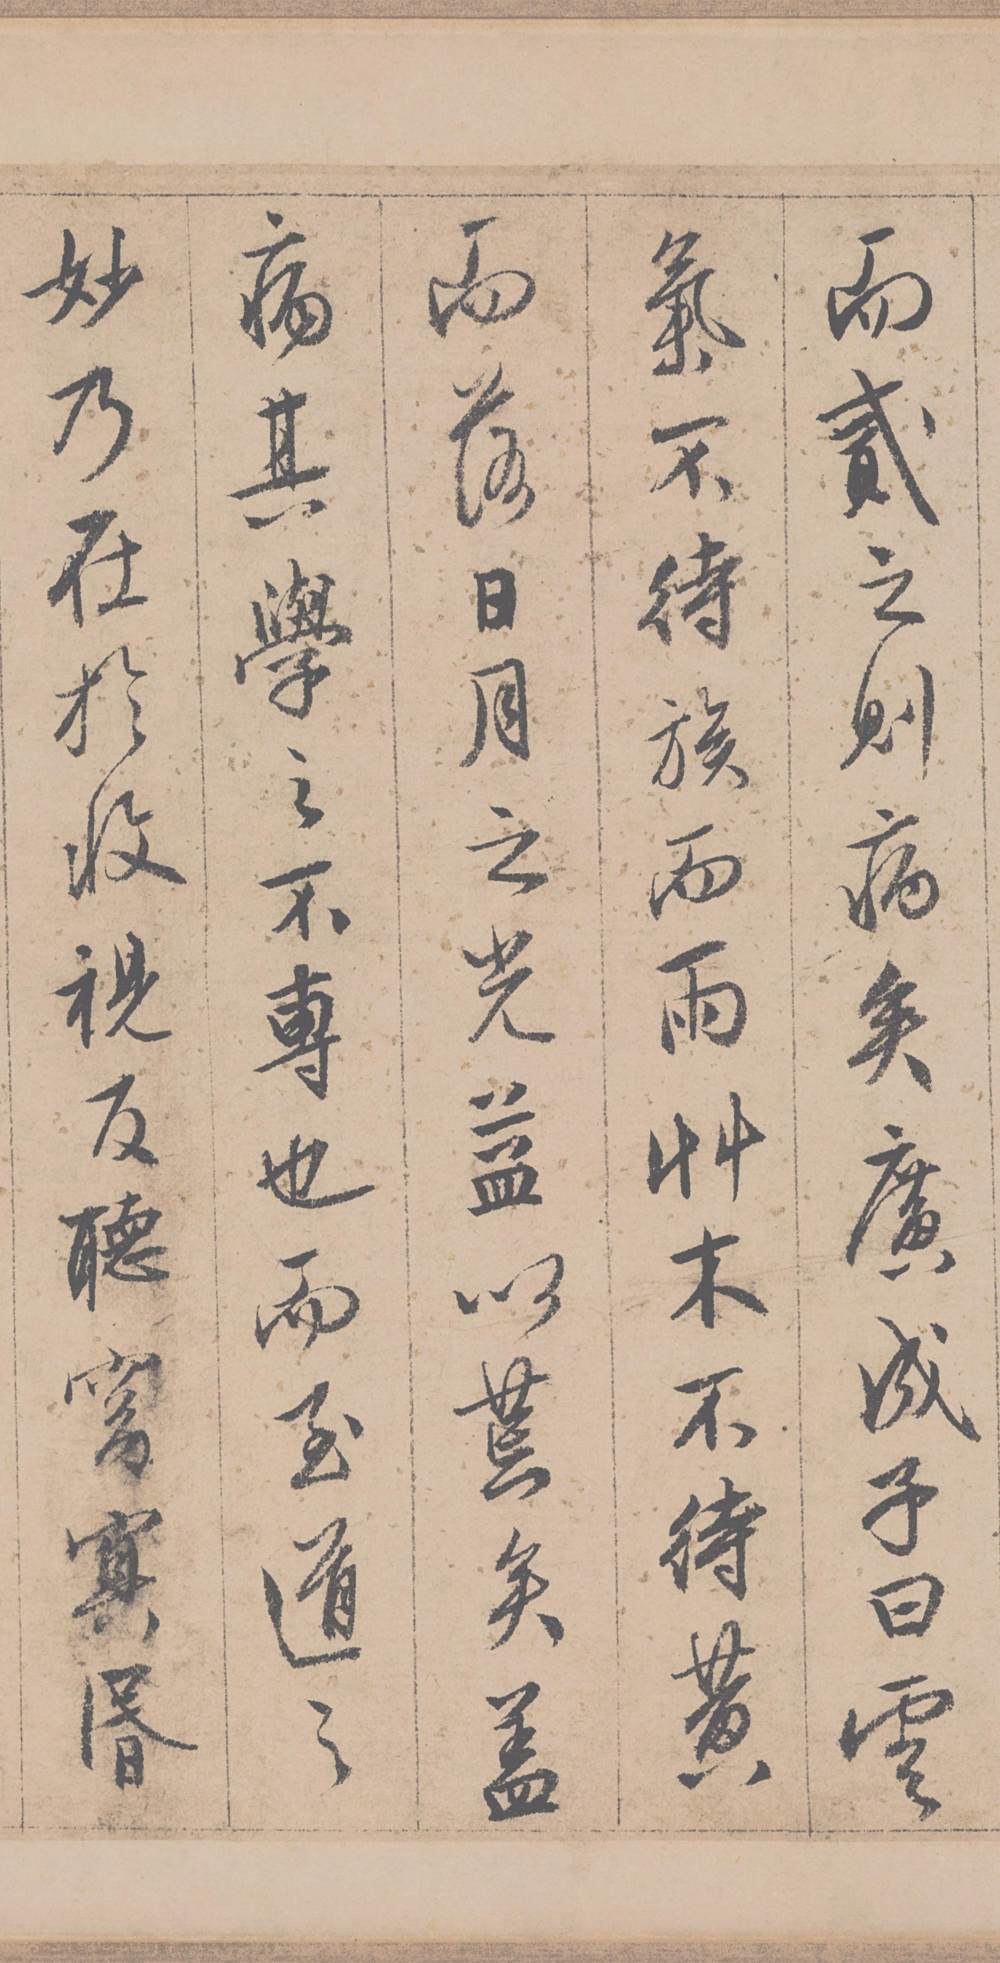 而貳之則病矣廣成子曰雲
氣不待族而雨艸木不待黃
而落日月之光益以荒矣蓋
病其學之不專也而至道之
妙乃在於收視反聽窅冥昏